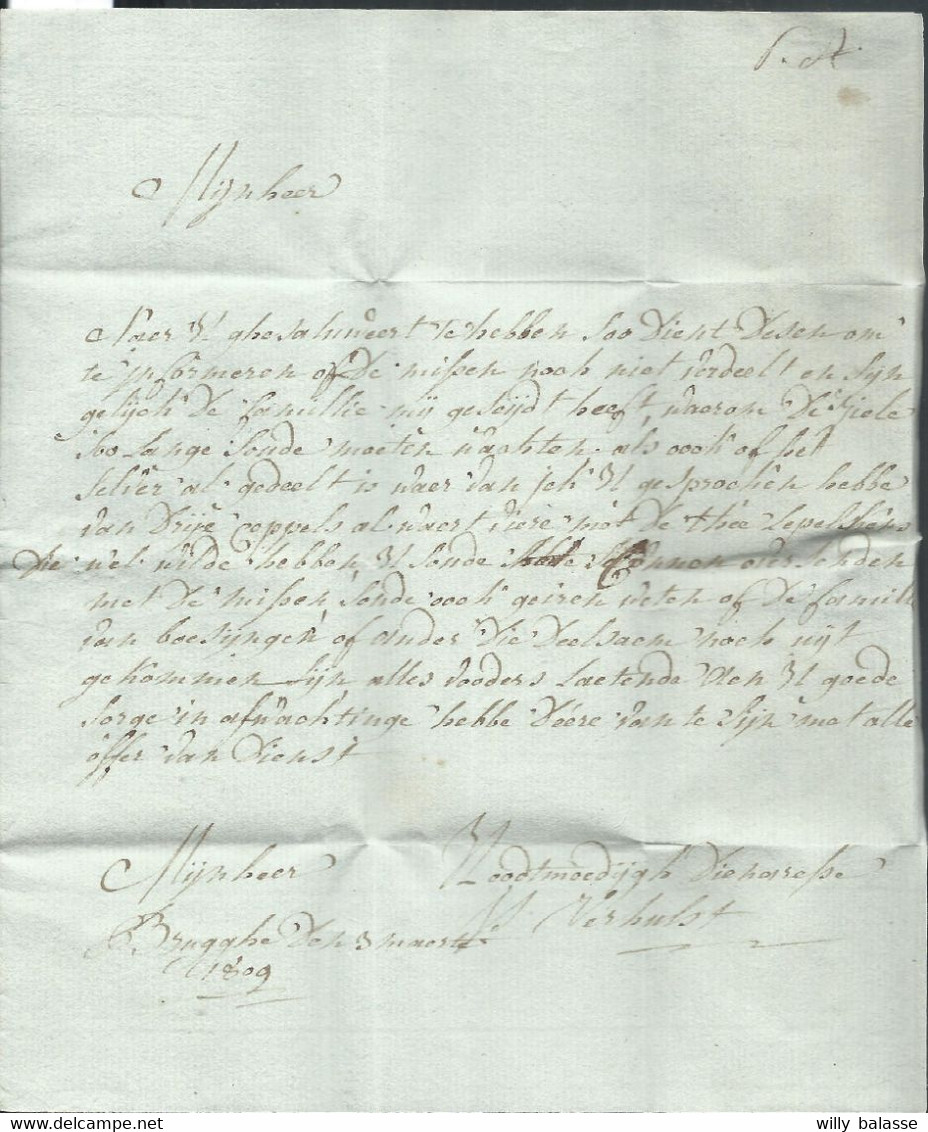 P. A.
Mijnheer
Naer Ul ghesalueert te hebben soo dient desen om
te informeren of de missen noch niet verdeelt en sijn
gelijck de famillie mij geseijdt heeft, waerom de ziele
soo lange soude moeten wachten. als oock of het
selver al gedeelt is waer van ick Ul gesprochen hebbe
van drije coppels al waert viere met de thée lepelkens
die wel wilde hebben Ul soude connen oversenden
met de missen, soude oock geiren weten of de famili
van boesijngen of ander die deelsaem noch niet
gekommen sijn alles voorders laetende aen Ul goede
sorge in afwachtinge hebbe d'éere van te sijn met alle
offer van dienst
Mijnheer Ul Oodtmoedijgh dienaresse
Verhulst
Brugghe den 3 maerte
1809
willy balasse